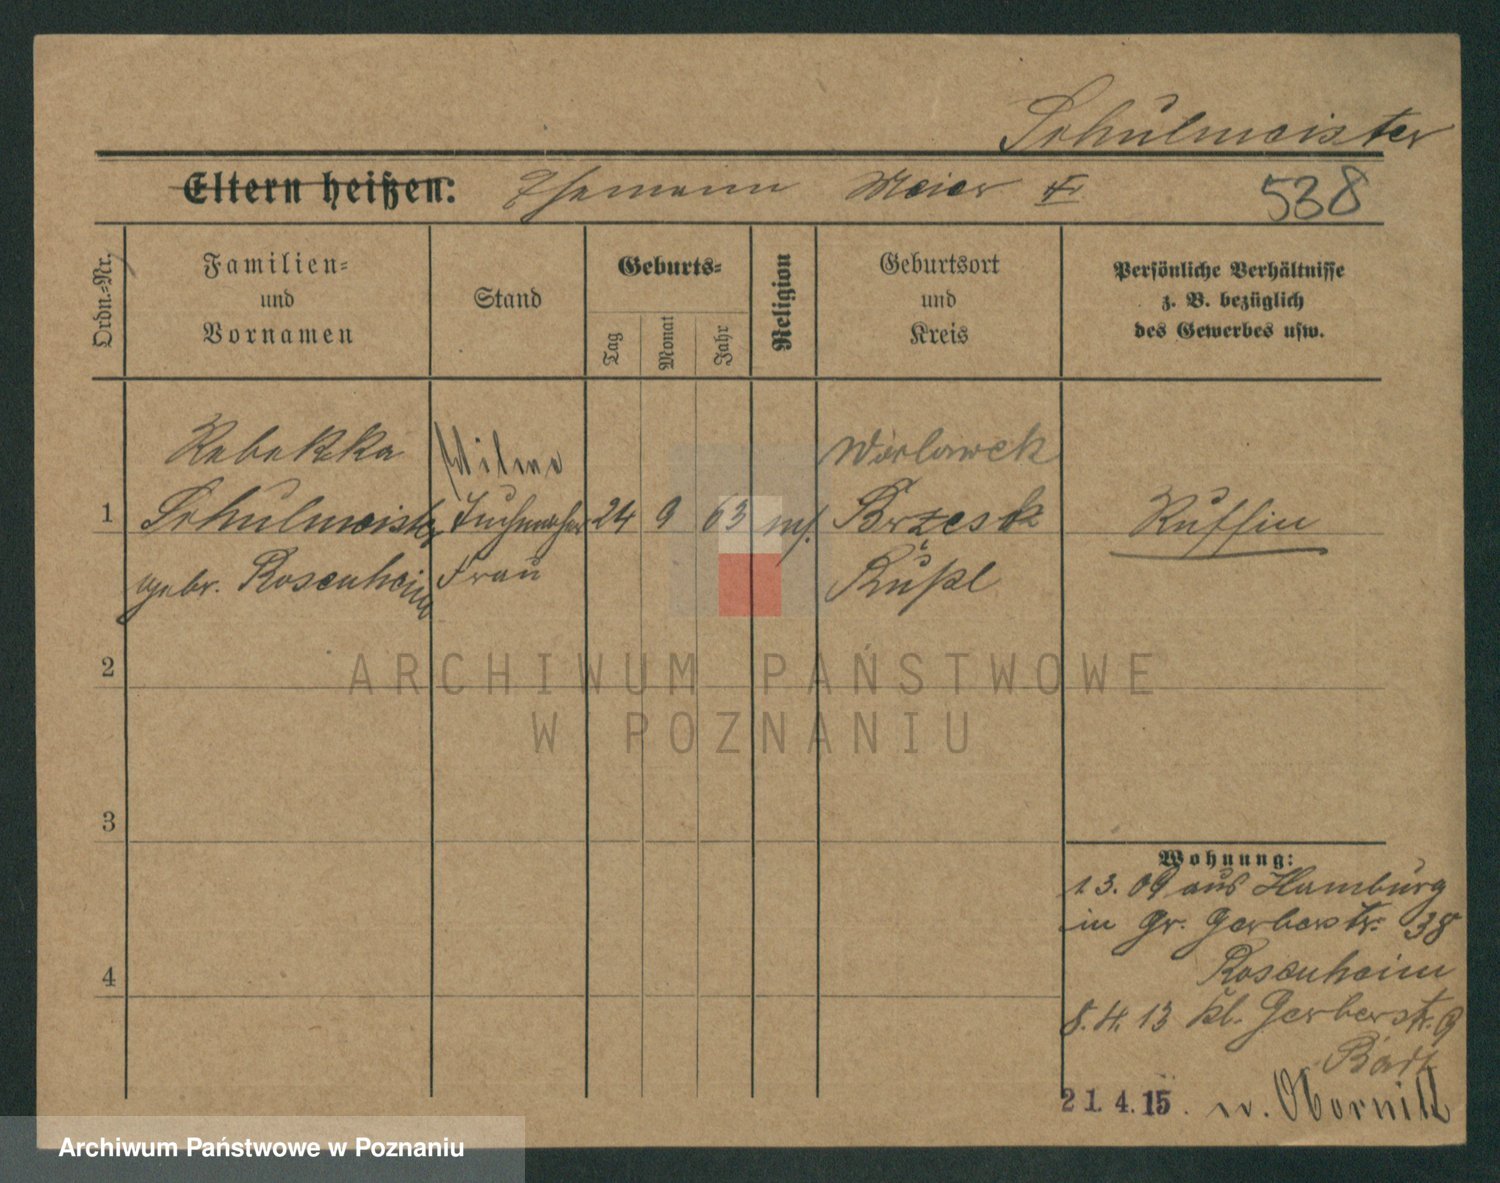 Schulmeister
Eltern heißen: Ehemann Meier
538
Ordn.-Nr.
Familien-
und
Vornamen
Stand
Geburts-
Tag
Monat
Jahr
Religion
Geburtsort
und
Kreis
Persönliche Verhältnisse
z. B. bezüglich
des Gewerbes usw.
1
Rebekka
Schulmeister
gebr. Rosenheim
Frau
24
9
63
Brzesk
Rußl
2
3
4
Wohnung:
1.3.09 aus Hamburg
in Gr. Gerberstr. 38
Rosenheim
8.4.13 Kl. Gerberstr. 9
21.4.15. n. Obornik
ARCHIWUM PAŃSTWOWE
W POZNANIU
Archiwum Państwowe w Poznaniu